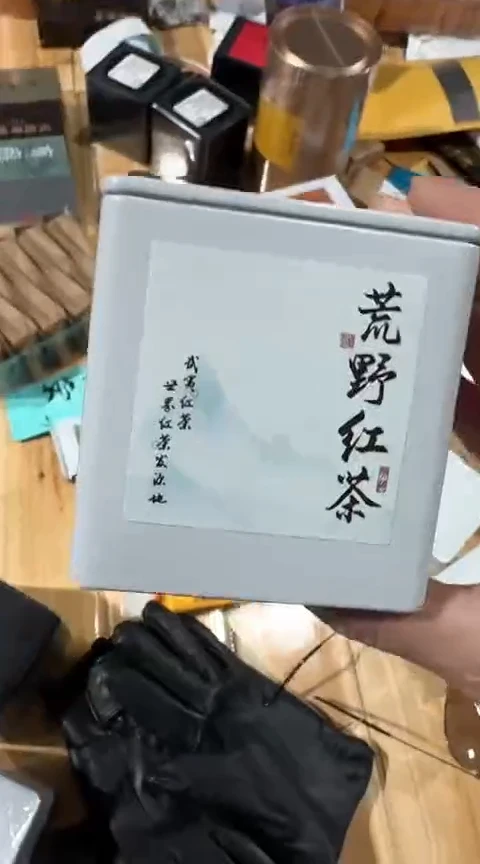 荒野红茶
武夷红茶
世界红茶发源地